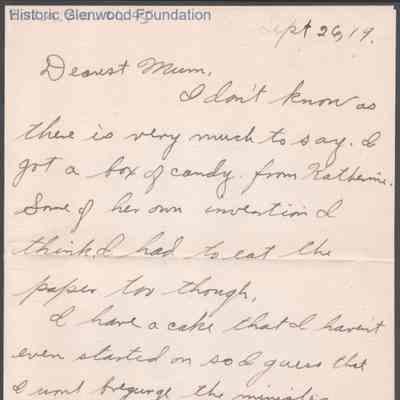 Historic Glenwood Foundation
Sept 26, 19.
Dearest Mum,
I don't know as
there is very much to say. I
got a box of candy from Katherine.
Some of her own invention I
think. I had to eat the
paper too though.
I have a cake that I havent
even started on so I guess that
I wont the